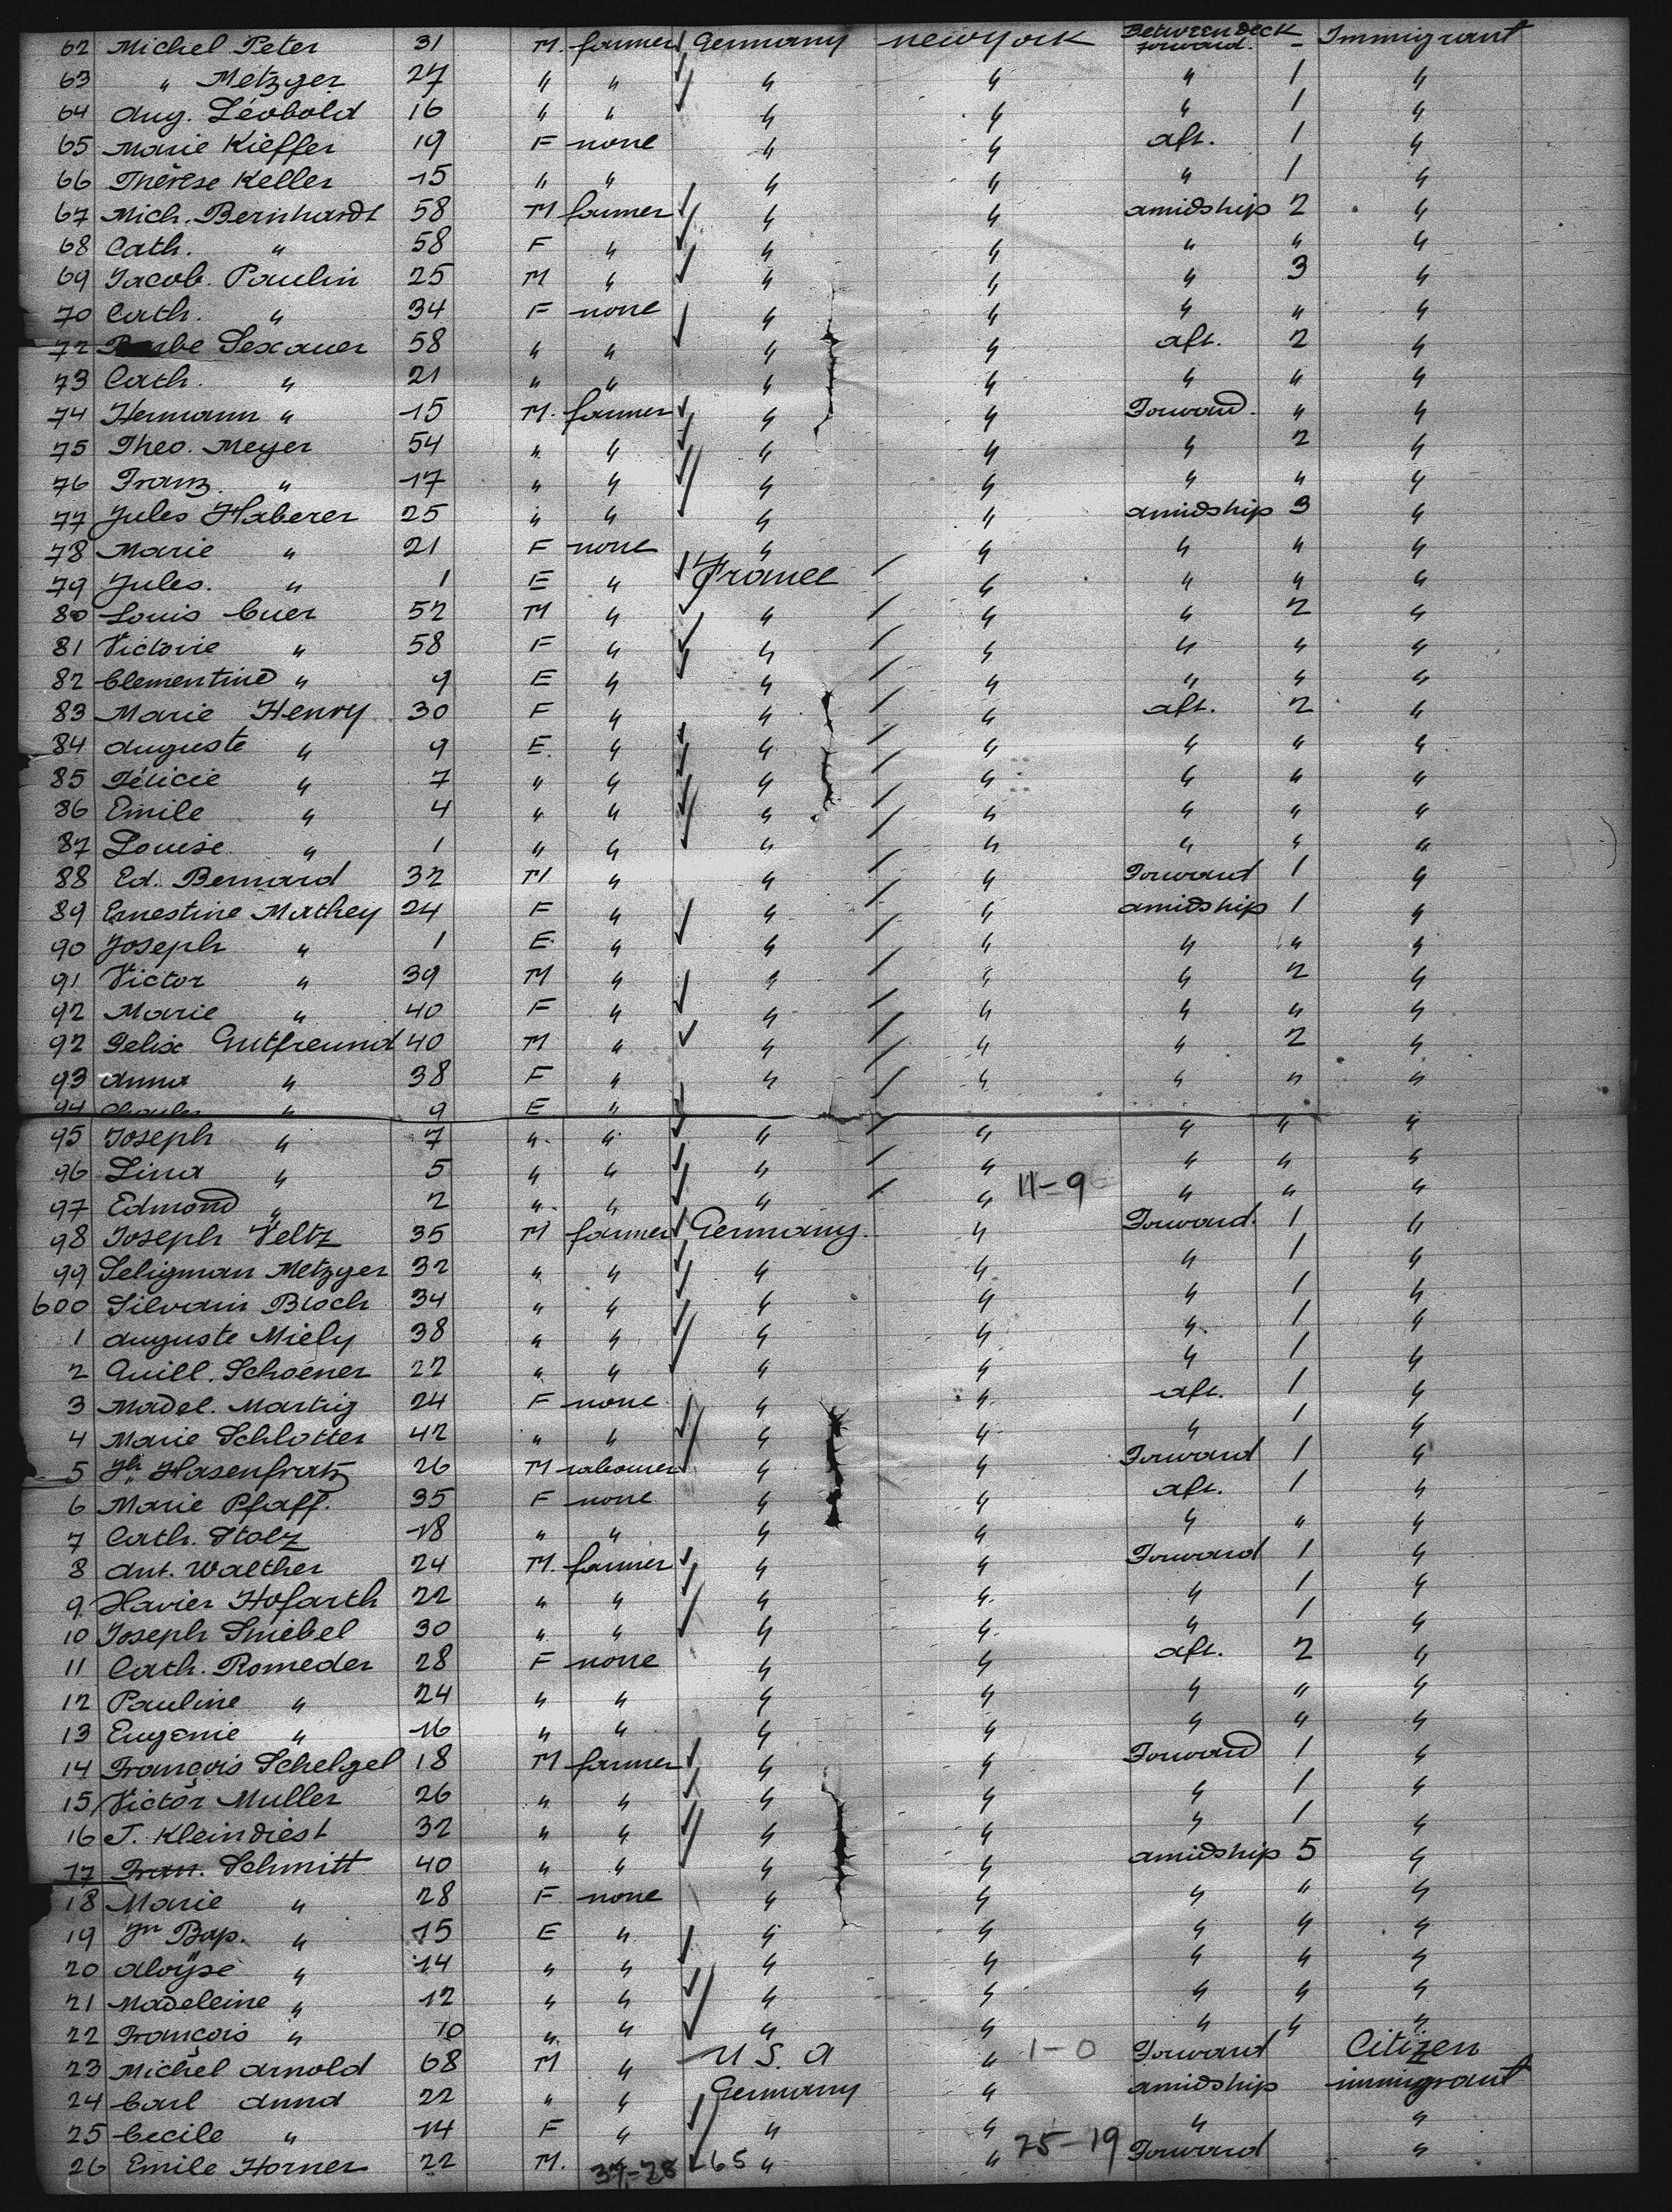 62 Michel Peter 31 M. farmer Germany New York Betweendeck forward. - Immigrant
63 " Metzger 27 " " " " " 1 "
64 Aug. Léobold 16 " " " " " 1 "
65 Marie Kieffer 19 F none " " aft. 1 "
66 Thérèse Keller 15 " " " " " 1 "
67 Mich. Bernhardt 58 M farmer " " amidship 2 "
68 Cath. " 58 F " " " " " "
69 Jacob. Paulin 25 M " " " " 3 "
70 Cath. " 34 F none " " " " "
72 Sexauer 58 " " " " aft. 2 "
73 Cath. " 21 " " " " " " "
74 Hermann " 15 M. farmer " " Forward. " "
75 Theo. Meyer 54 " " " " " 2 "
76 Franz. " 17 " " " " " " "
77 Jules Haberer 25 " " " " amidship 3 "
78 Marie " 21 F none " " " " "
79 Jules. " 1 E " France " " " "
80 Louis Cuer 52 M " " " " 2 "
81 Victorie " 58 F " " " " " "
82 Clementine " 9 E " " " " " "
83 Marie Henry 30 F " " " aft. 2 "
84 Auguste " 9 E. " " " " " "
85 Félicie " 7 " " " " " " "
86 Emile " 4 " " " " " " "
87 Louise " 1 " " " " " " "
88 Ed. Bernard 32 M " " " Forward 1 "
89 Ernestine Mathey 24 F " " " amidship 1 "
90 Joseph " 1 E. " " " " " "
91 Victor " 39 M " " " " 2 "
92 Marie " 40 F " " " " " "
92 Felix Gutfreund 40 M " " " " 2 "
93 Anna " 38 F " " " " " "
94 " 9 E "
95 Joseph " 7 " " " " " " "
96 Lina " 5 " " " " " " "
97 Edmond " 2 " " " " 11-9 " " "
98 Joseph Veltz 35 M farmer Germany. " Forward. 1 "
99 Seligman Metzger 32 " " " " " 1 "
600 Silvain Bloch 34 " " " " " 1 "
1 Auguste Miely 38 " " " " " 1 "
2 Guill. Schoener 22 " " " " " 1 "
3 Madel. Martig 24 F none " " aft. 1 "
4 Marie Schlotter 42 " " " " " 1 "
5 Jh. Hasenfratz 26 M labourer " " Forward 1 "
6 Marie Pfaff. 35 F none " " aft. 1 "
7 Cath. Stolz 18 " " " " " " "
8 Ant. Walther 24 M. farmer " " Forward 1 "
9 Xavier Hofarth 22 " " " " " 1 "
10 Joseph Sniebel 30 " " " " " 1 "
11 Cath. Romeder 28 F none " " aft. 2 "
12 Pauline " 24 " " " " " " "
13 Eugenie " 16 " " " " " " "
14 François Schelgel 18 M farmer " " Forward 1 "
15 Victor Muller 26 " " " " " 1 "
16 J. Kleindiest 32 " " " " " 1 "
17 Fran. Schmitt 40 " " " " amidship 5 "
18 Marie " 28 F. none " " " " "
19 Jn Bap. " 15 E " " " " " "
20 Aloÿse " 14 " " " " " " "
21 Madeleine " 12 " " " " " " "
22 François " 10 " " " " " " "
23 Michel Arnold 68 M " U.S.A " 1-0 Forward Citizen
24 Carl Annd 22 " " Germany " amidship immigrant
25 Cecile " 14 F " " " " "
26 Emile Horner 22 M. " " 25-19 Forward "
37-28 65